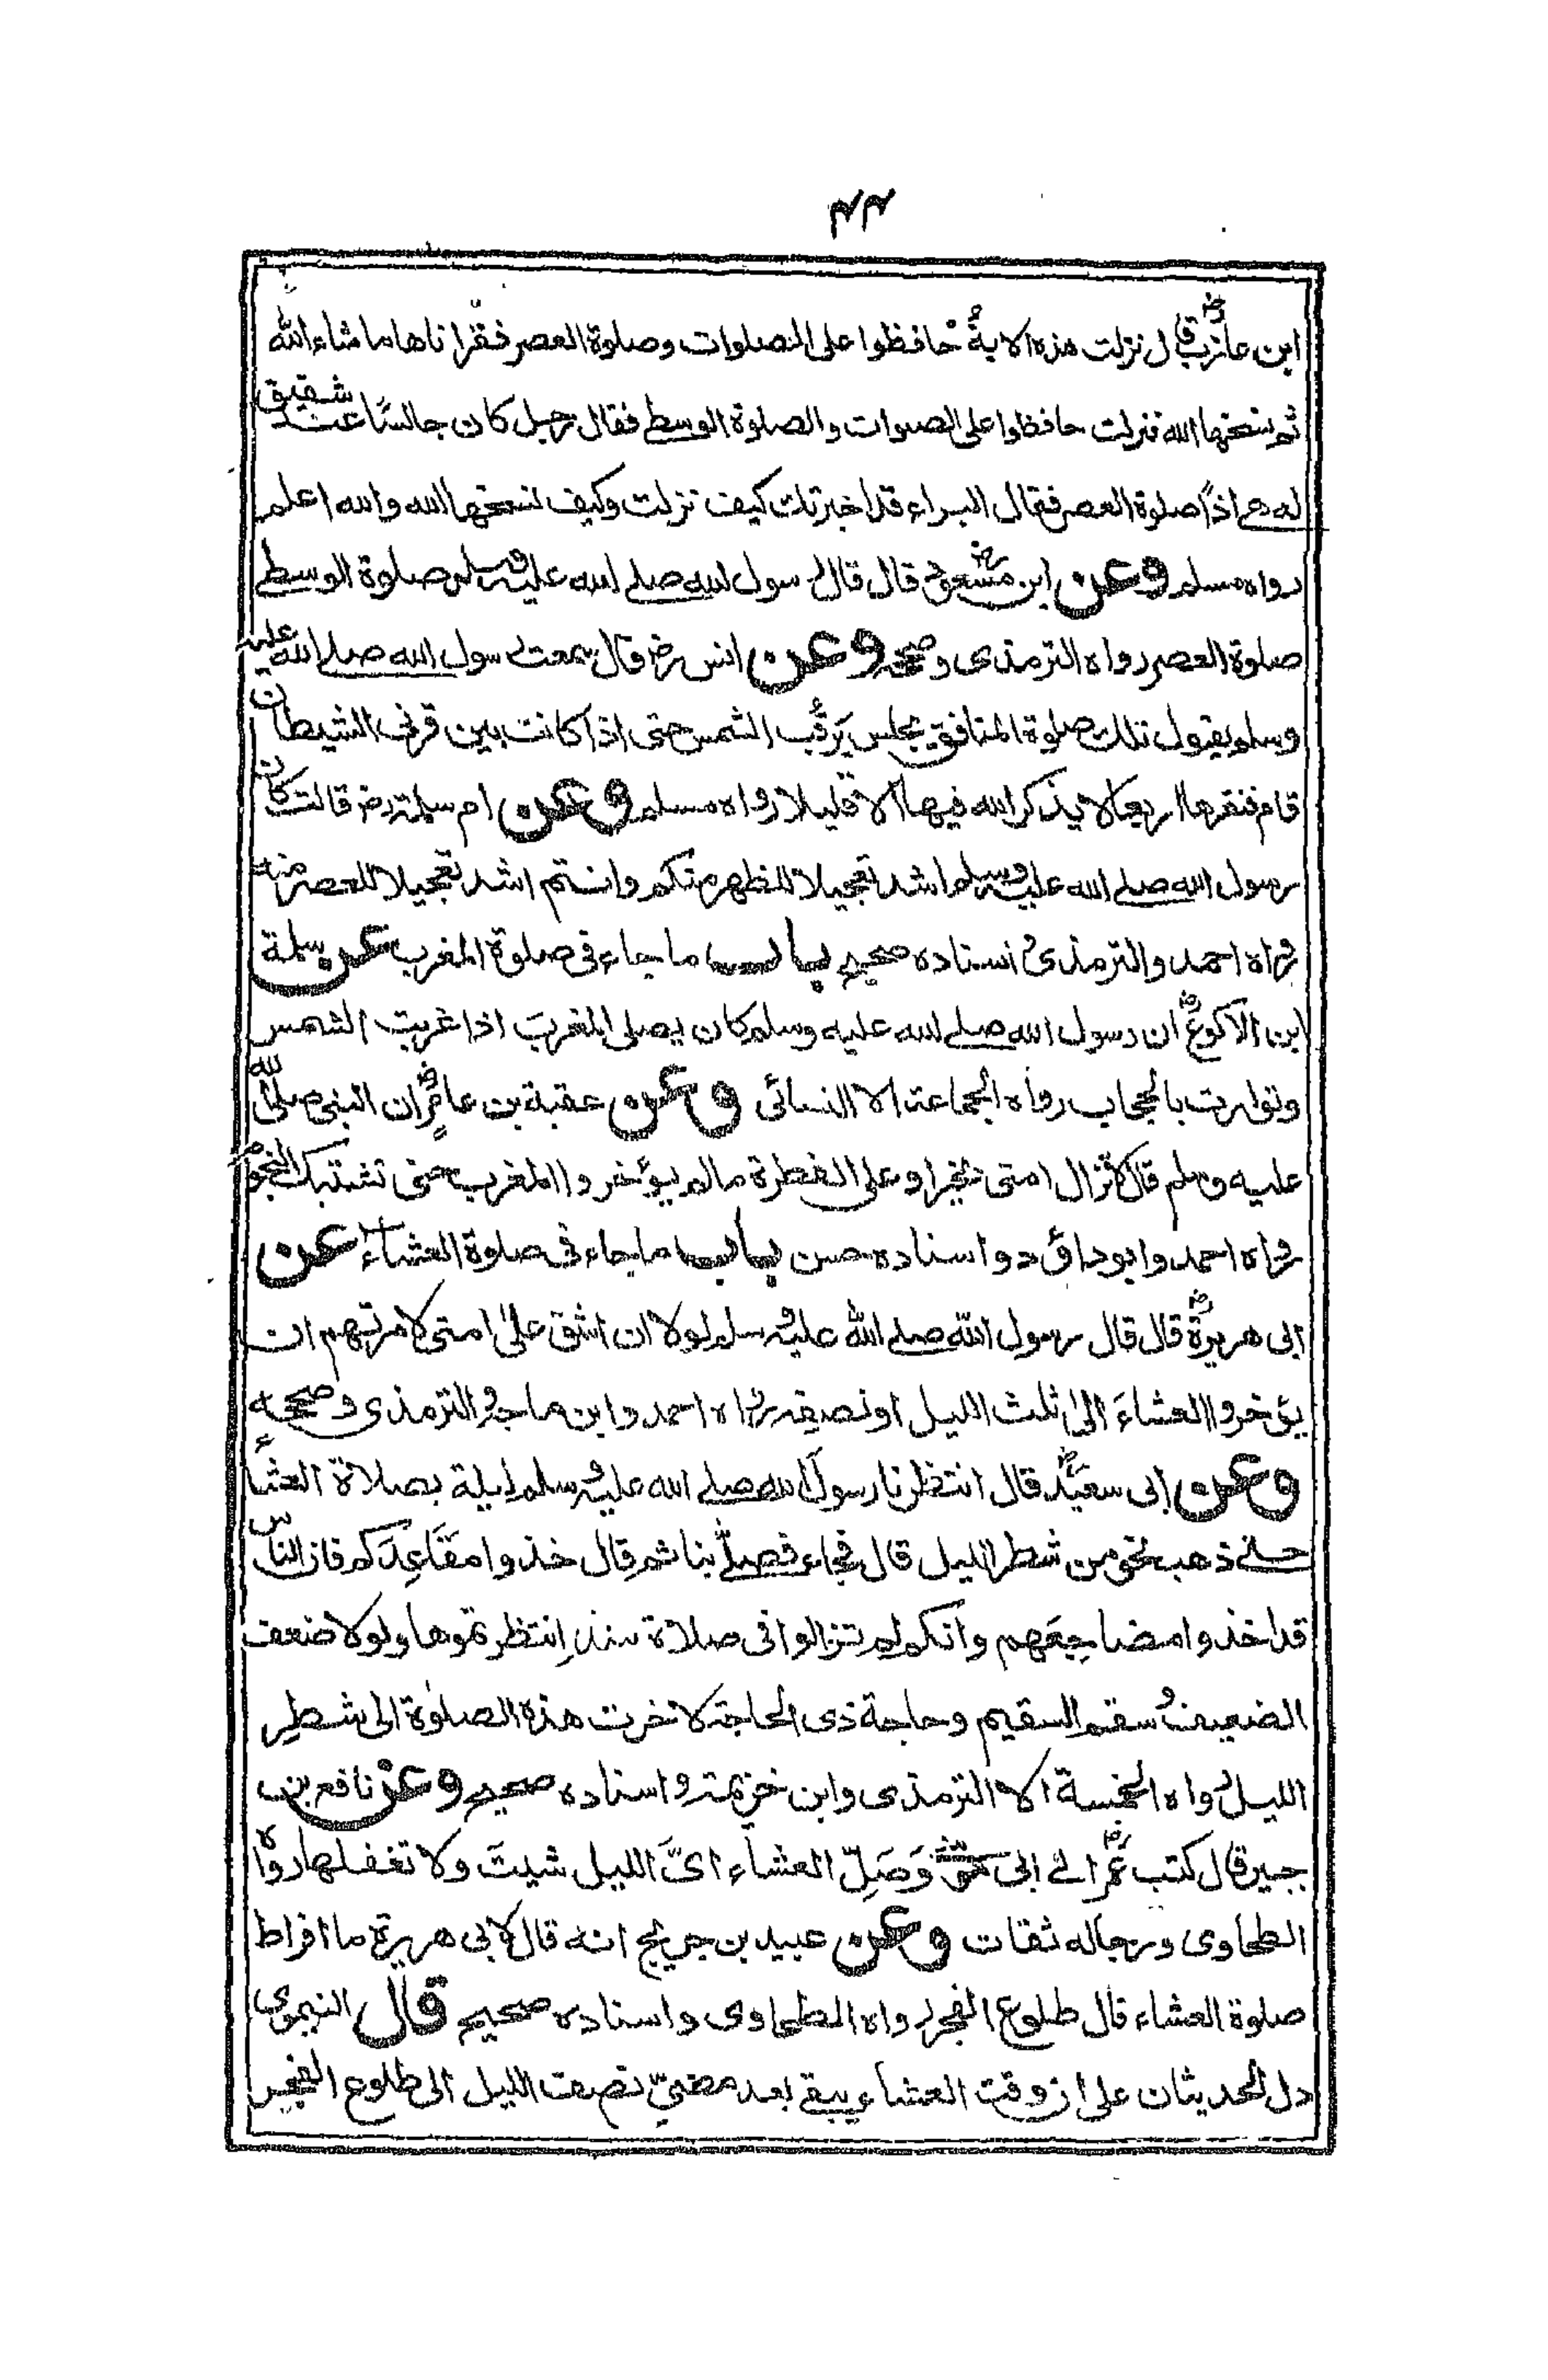 ۴۴
ابن عازبؓ قال نزلت هذه الاية حافظوا على الصلوات وصلوة العصر فقرأناها ما شاء الله
ثم نسخها الله فنزلت حافظوا على الصلوات والصلوة الوسطى فقال رجل كان جالسًا عند شقيق
له هے اذًا صلوة العصر فقال البراء قد اخبرتك كيف نزلت وكيف نسخها الله والله اعلم
رواه مسلم وعن ابن مسعودؓ قال قال رسول الله صلے الله عليه وسلم صلوة الوسطے
صلوة العصر رواه الترمذى وصححه وعن انس رض قال سمعت رسول الله صلے الله عليه
وسلم يقول تلك صلوة المنافق يجلس يَرقُب الشمس حتى اذا كانت بين قرنى الشيطان
قام فنقرها اربعا لا يذكر الله فيها الا قليلا رواه مسلم وعن ام سلمة رض قالت كان
رسول الله صلے الله عليه وسلم اشد تعجيلا للظهر منكم وانتم اشد تعجيلا للعصر منه
رواه احمد والترمذى واسناده صحيح باب ما جاء فى صلوة المغرب عن سلمة
ابن الاكوعؓ ان رسول الله صلے الله عليه وسلم كان يصلى المغربَ اذا غربت الشمس
وتوارت بالحجاب رواه الجماعة الا النسائى وعن عقبة بن عامرؓ ان النبى صلى الله
عليه وسلم قال لا تزال امتى بخير او على الفطرة ما لم يؤخروا المغرب حتى تشتبك النجوم
رواه احمد وابوداؤد واسناده حسن باب ما جاء فى صلوة العشاء عن
ابى هريرةؓ قال قال رسول الله صلے الله عليه وسلم لولا ان اشق على امتى لامرتهم ان
يؤخروا العشاءَ الى ثلث الليل او نصفِه رواه احمد وابن ماجة والترمذى وصححه
وعن ابى سعيدؓ قال انتظرنا رسولَ الله صلے الله عليه وسلم ليلة بصلاة العشاء
حتے ذهب نحو من شطر الليل قال فجاء فصلےّ بنا ثم قال خذوا مقَاعِدَكم فان الناس
قد اخذوا مضاجِعَهم وانكم لم تزالوا فى صلاة منذ انتظرتموها ولولا ضعف
الضعيف وسقم السقيم وحاجة ذى الحاجة لاخرت هذه الصلوة الى شطرِ
الليل رواه الخمسة الا الترمذى وابن خزيمة واسناده صحيح وعن نافع بن
جبير قال كتب عمرؓ الے ابى موسى وَصَلِّ العشاء اىَّ الليل شيتَ ولا تغفلها رواه
الطحاوى ورجاله ثقات وعن عبيد بن جريج انه قال لابى هريرة ما افراط
صلوة العشاء قال طلوع الفجر رواه الطحاوى واسناده صحيح قال النيموى
دل الحديثان على ان وقت العشاء يبقے بعد مضىّ نصف الليل الى طلوع الفجر